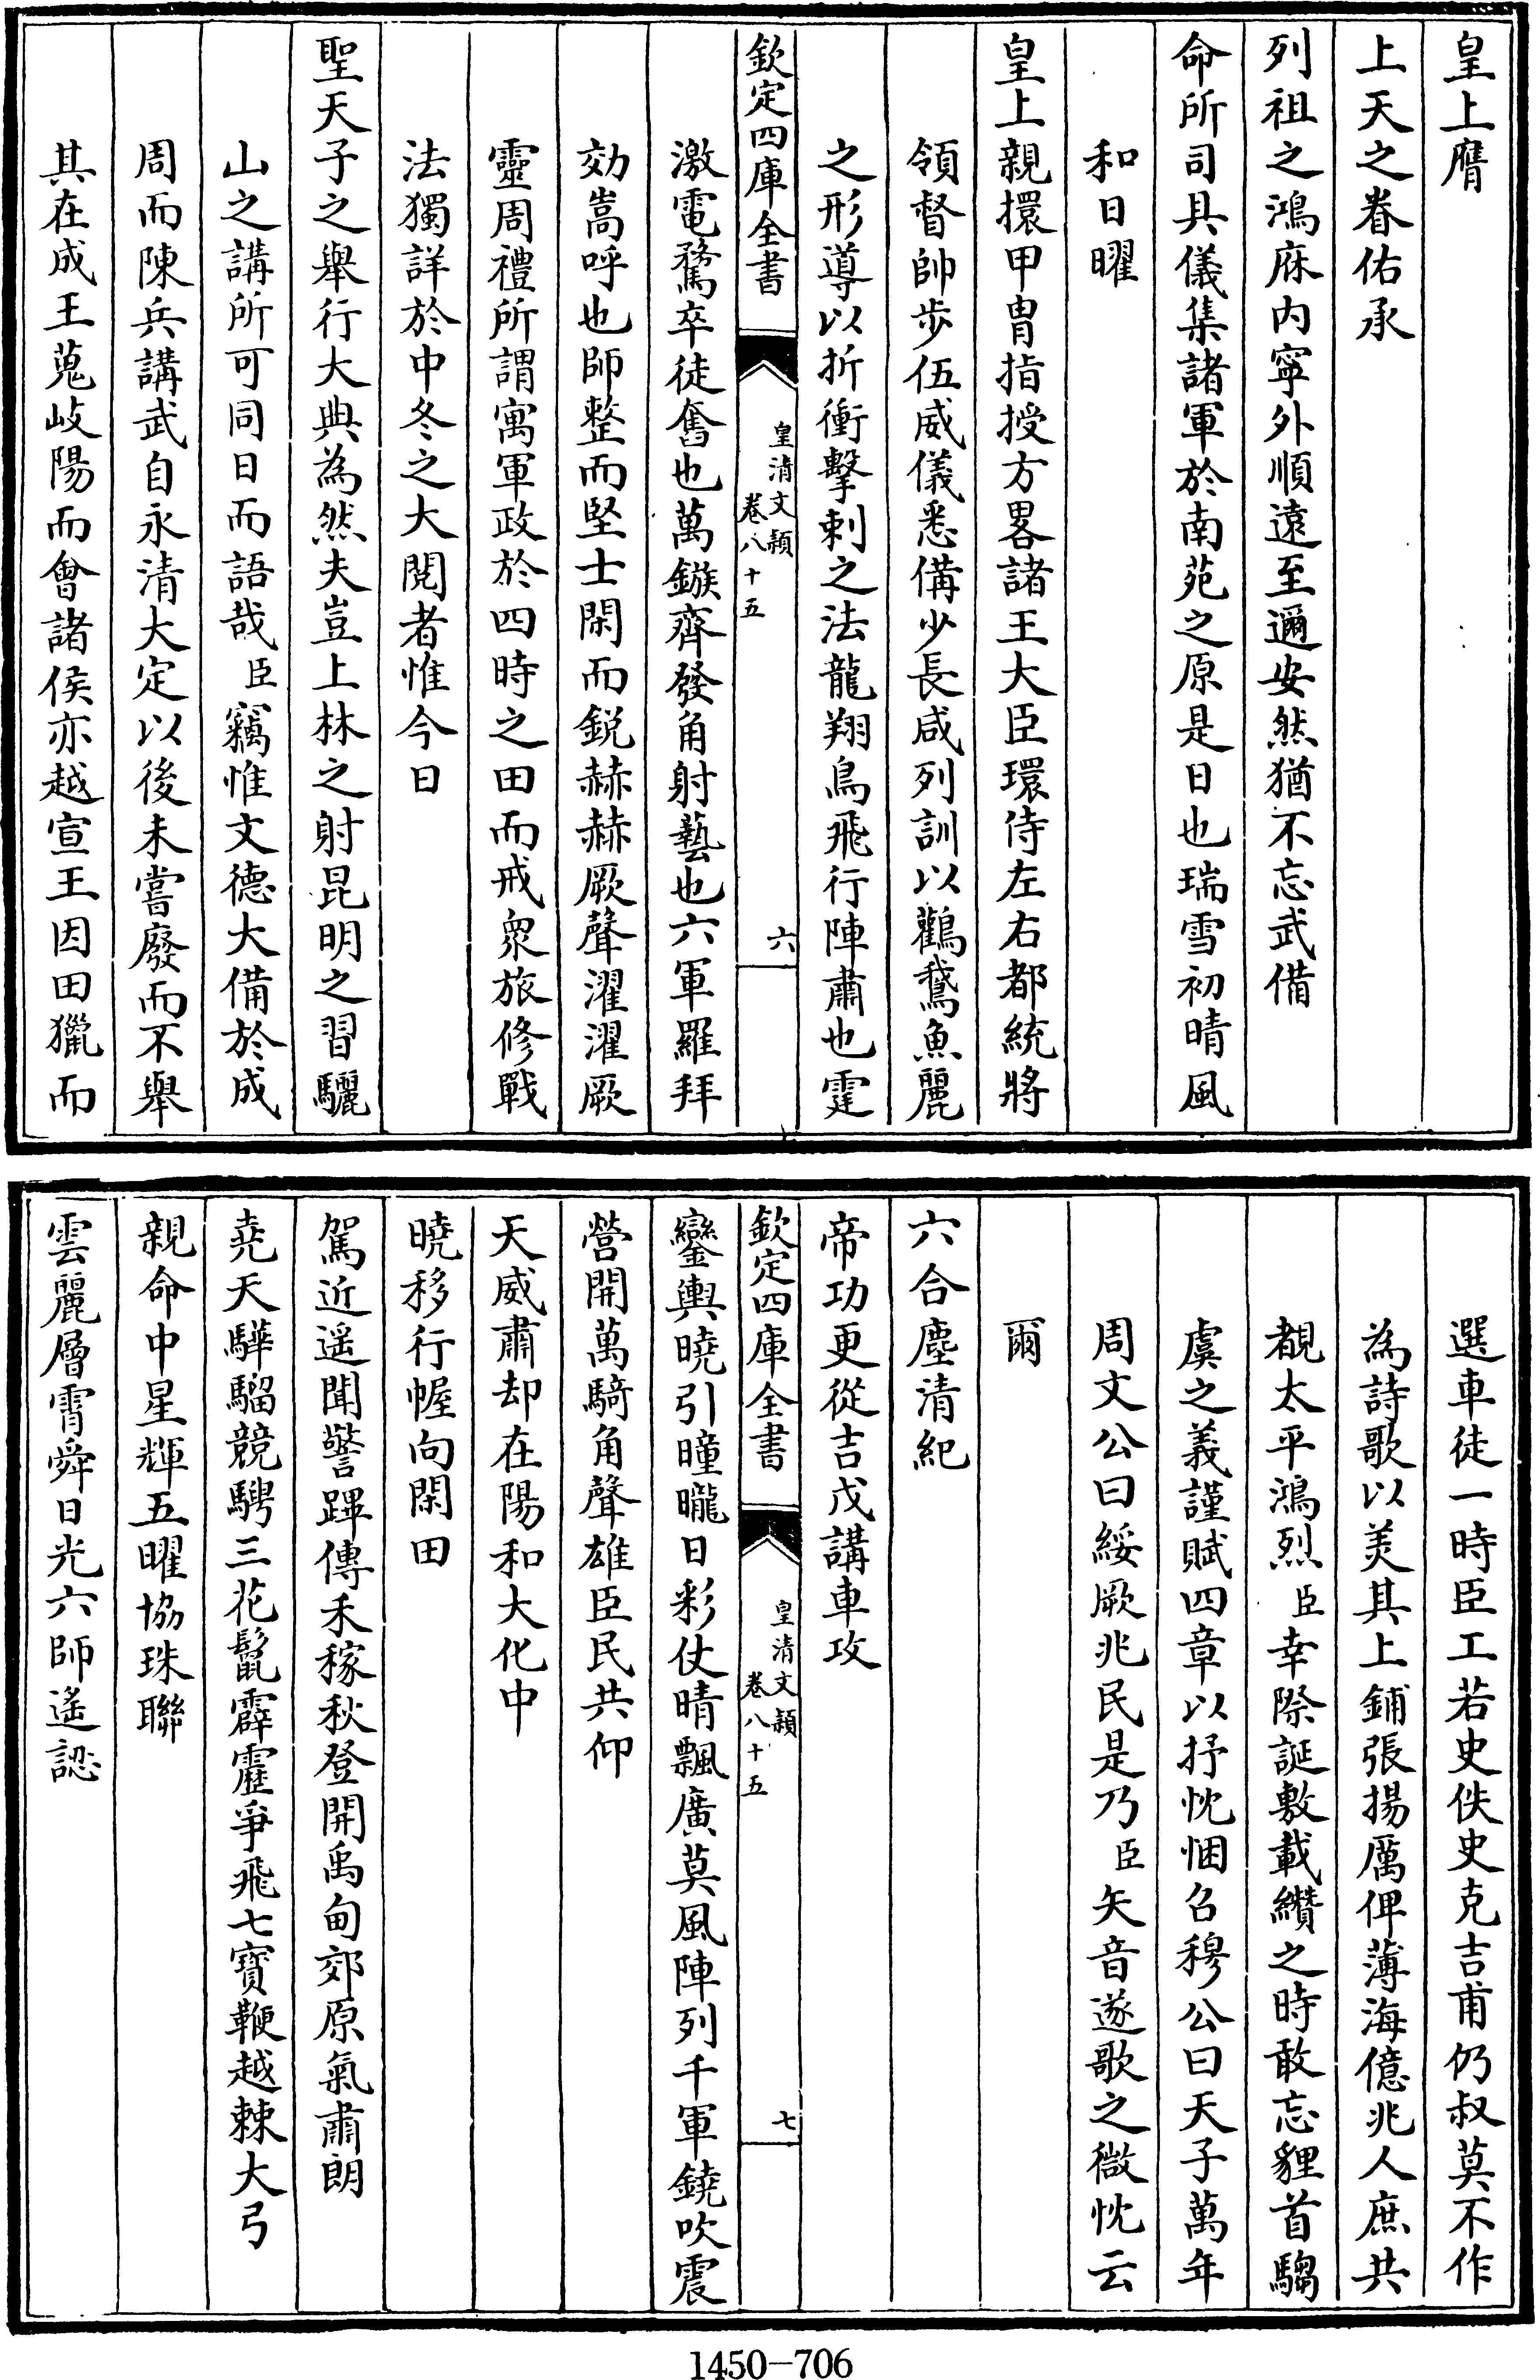 皇上膺
上天之眷佑承
列祖之鴻庥内寧外順遠至邇安然猶不忘武備
命所司具儀集諸軍於南苑之原是日也瑞雪初晴風
和日曜
皇上親擐甲胄指授方畧諸王大臣環侍左右都統將
領督帥步伍威儀悉備少長咸列訓以鸛鵞魚麗
之形導以折衝擊刺之法龍翔鳥飛行陣肅也霆
欽定四庫全書
皇清文穎
卷八十五
六
激電騖卒徒奮也萬鏃齊發角射藝也六軍羅拜
効嵩呼也師整而堅士閑而鋭赫赫厥聲濯濯厥
靈周禮所謂寓軍政於四時之田而戒衆旅修戰
法獨詳於中冬之大閲者惟今日
聖天子之舉行大典為然夫豈上林之射昆明之習驪
山之講所可同日而語哉臣竊惟文德大備於成
周而陳兵講武自永清大定以後未嘗廢而不舉
其在成王蒐岐陽而會諸侯亦越宣王因田獵而
選車徒一時臣工若史佚史克吉甫仍叔莫不作
為詩歌以美其上鋪張揚厲俾薄海億兆人庶共
覩太平鴻烈臣幸際誕敷載纘之時敢忘貍首騶
虞之義謹賦四章以抒忱悃召穆公曰天子萬年
周文公曰綏厥兆民是乃臣矢音遂歌之微忱云
爾
六合塵清紀
帝功更從吉戊講車攻
欽定四庫全書
皇清文穎
卷八十五
七
鑾輿曉引曈曨日彩仗晴飄廣莫風陣列千軍鐃吹震
營開萬騎角聲雄臣民共仰
天威肅却在陽和大化中
曉移行幄向閑田
駕近遥聞警蹕傳禾稼秋登開禹甸郊原氣肅朗
堯天驊騮競騁三花鬣霹靂爭飛七寳鞭越棘大弓
親命中星輝五曜協珠聯
雲麗層霄舜日光六師遙認
1450-706